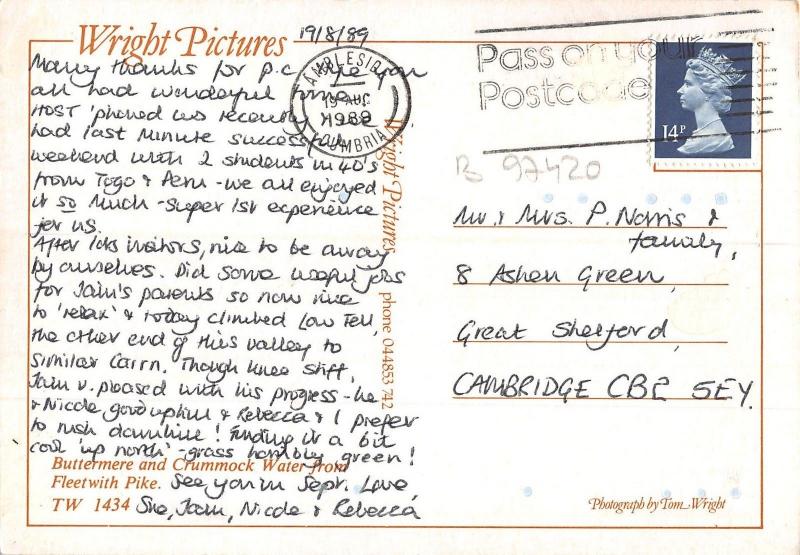 Wright Pictures
19/8/89
Many thanks for p.c. you
all had wonderful time.
HOST 'phoned us recently & we
had last minute successful
weekend with 2 students in 40's
from Togo & Peru - we all enjoyed
it so much - super 1st experience
for us.
After lots visitors, nice to be away
by ourselves. Did some useful jobs
for Iain's parents so now nice
to 'relax' & today climbed Low Fell,
the other end of this valley to
similar cairn. Though knee stiff,
Iain v. pleased with his progress - he
& Nicole good uphill & Rebecca & I prefer
to rush downhill! Finding it a bit
cool 'up north' - grass horribly green!
Buttermere and Crummock Water from
Fleetwith Pike. See you in Sept. Love,
TW 1434 Sue, Iain, Nicole & Rebecca
Wright Pictures phone 044853 742
AMBLESIDE
19 AUG
1989
CUMBRIA
Pass on your
Postcode
14P
B 97420
Mr. & Mrs. P. Norris &
family,
8 Ashen Green,
Great Shelford,
CAMBRIDGE CB2 5EY.
Photograph by Tom Wright